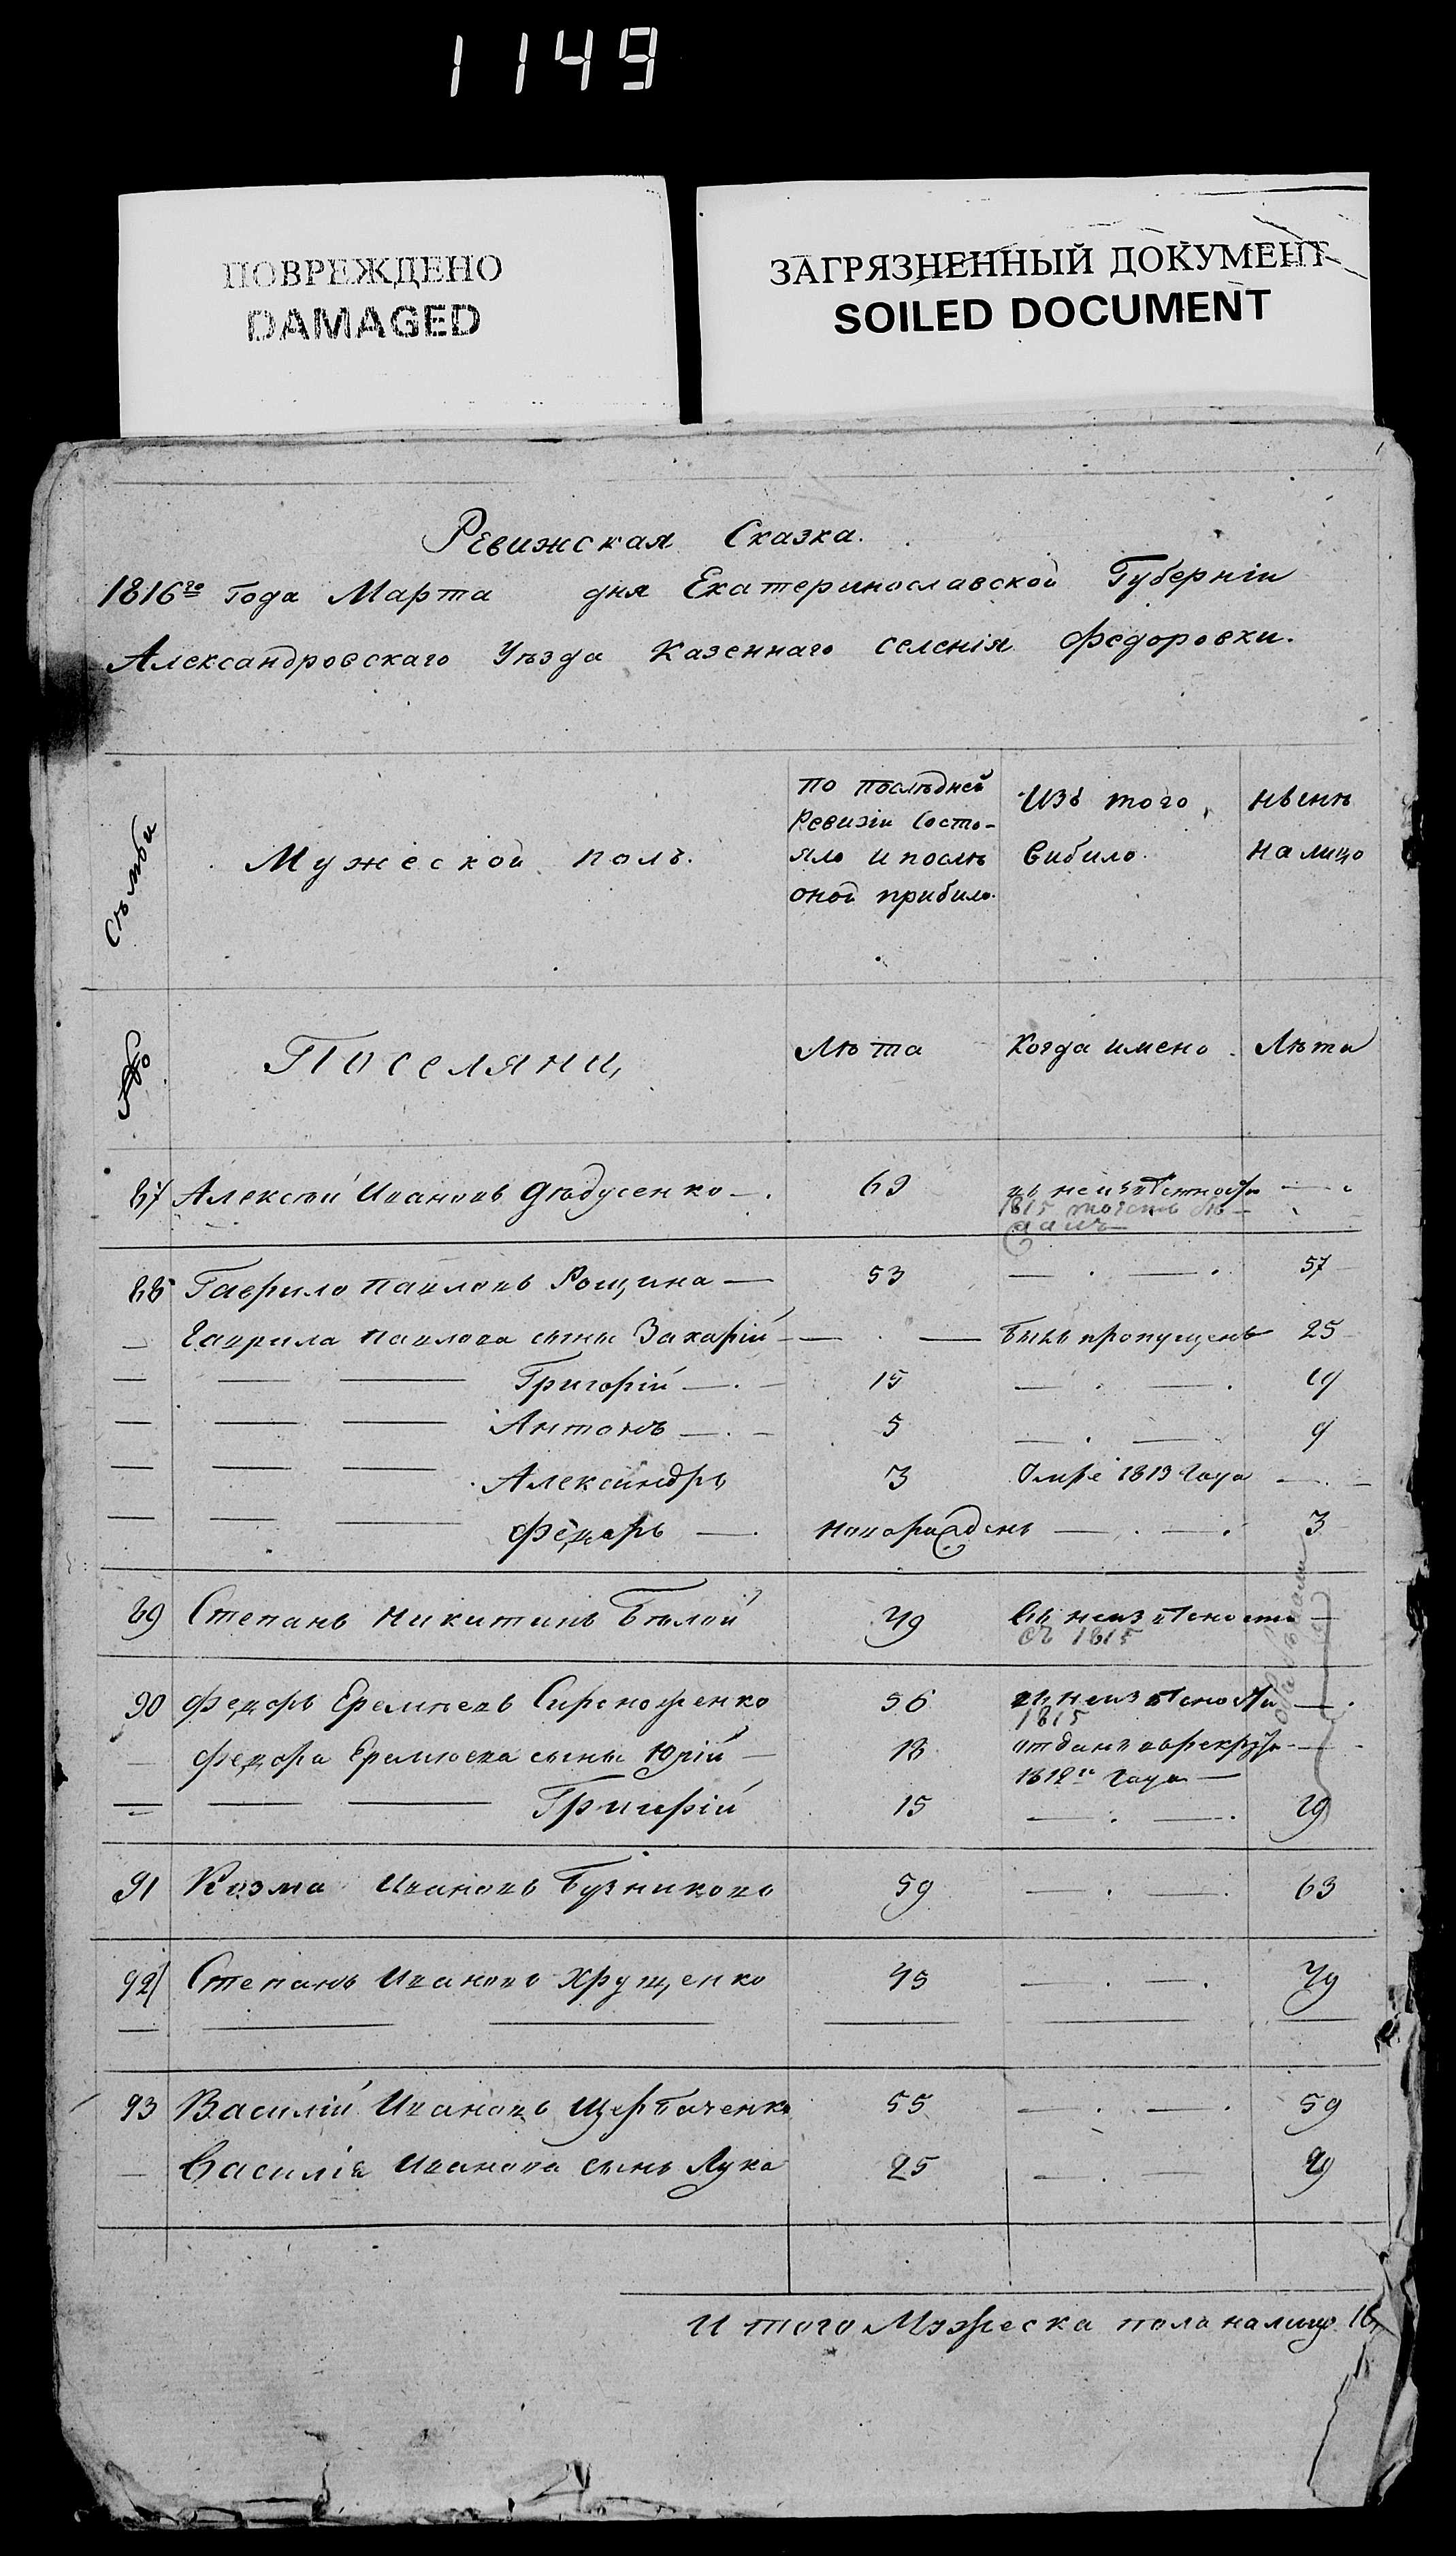 1149
ПОВРЕЖДЕНО
DAMAGED
ЗАГРЯЗНЕННЫЙ ДОКУМЕНТ
SOILED DOCUMENT
Ревижская Сказка.
1816го Года Марта дня Екатеринославской Губерніи
Александровскаго Уѣзда Казеннаго селенія Федоровки.
Мужеской полъ.
По послѣдней Ревизіи Состо-
яло и послѣ оной прибило.
Изъ того Вибило.
нынѣ на лицо
Поселяни,
Лѣта
Когда имено
Лѣта
87 Алексѣй Ивановъ Дѣдусенко 69 въ неизвѣстности
1815
88 Гаврило Павловъ Рощина 53 57
Гаврила Павлова сыны Захарій былъ пропущенъ 25
Григорій 15 19
Антонъ 5 9
Александръ 3 Омре 1813 Года
Федоръ новорожденъ 3
89 Степанъ Никитинъ Бѣлой 49 въ неизвѣсности
съ 1815
90 Федоръ Еремѣевъ Сироноженко 56 въ неизвѣсности
1815
Федора Еремѣева сыны Юрій 18 отданъ в рекруты
1812го Года
Григорій 15 19
91 Козма Ивановъ Бузниковъ 59 63
92 Степанъ Ивановъ Хрущенко 45 49
93 Василій Ивановъ Щербаченко 55 59
Василія Иванова сынъ Лука 25 29
И того Мужеска пола налицо